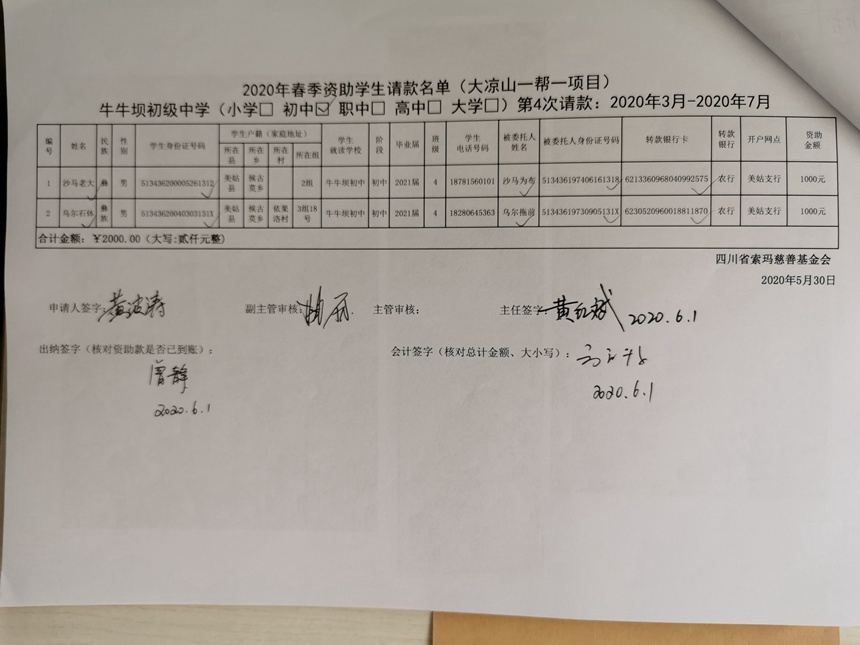 2020年春季资助学生请款名单（大凉山一帮一项目）
牛牛坝初级中学（小学□ 初中☑ 职中□ 高中□ 大学□）第4次请款：2020年3月-2020年7月
编号 姓名 民族 性别 学生身份证号码 学生户籍（家庭地址） 学生就读学校 阶段 毕业届 班级 学生电话号码 被委托人姓名 被委托人身份证号码 转款银行卡 转款银行 开户网点 资助金额
所在县 所在乡 所在村 所在组
1 沙马老大 彝族 男 513436200005261312 美姑县 候古莫乡 2组 牛牛坝初中 初中 2021届 4 18781560101 沙马为布 513436197406161318 6213360968040992575 农行 美姑支行 1000元
2 乌尔石体 彝族 男 51343620040303131X 美姑县 候古莫乡 依果洛村 3组18号 牛牛坝初中 初中 2021届 4 18280645363 乌尔拖前 51343619730905131X 6230520960018811870 农行 美姑支行 1000元
合计金额：￥2000.00（大写:贰仟元整）
四川省索玛慈善基金会
2020年5月30日
申请人签字： 黄波涛 副主管审核： 主管审核： 主任签字： 黄红斌 2020.6.1
出纳签字（核对资助款是否已到账）： 会计签字（核对总计金额、大小写）：
曾静
2020.6.1
2020.6.1